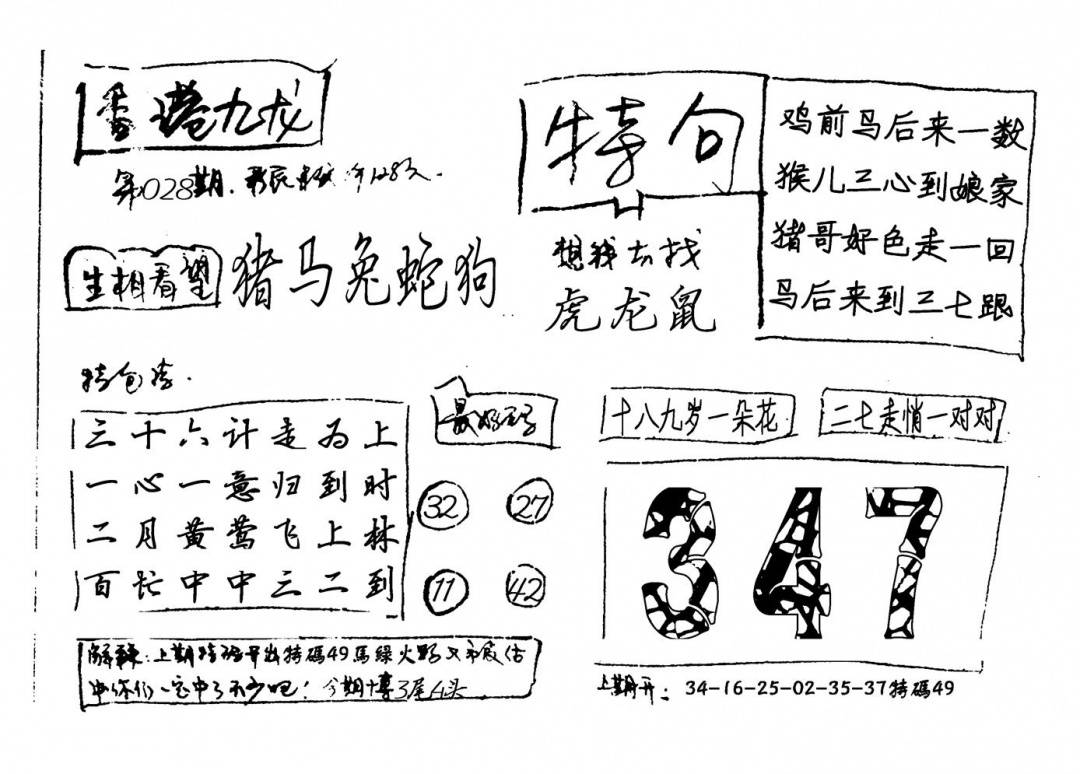 香港九龙
第028期.
生相看望
猪马兔蛇狗
特句
想我去找
虎龙鼠
鸡前马后来一数
猴儿三心到娘家
猪哥好色走一回
马后来到三七跟
特包
三十六计走为上
一心一意归到时
二月黄莺飞上林
百忙中中三二到
32 27
11 42
十八九岁一朵花
二七走悄一对对
347
解释：上期特码开出特碼49馬綠火
中你们一定中了不少吧！今期博3尾4头
上期开：34-16-25-02-35-37特碼49